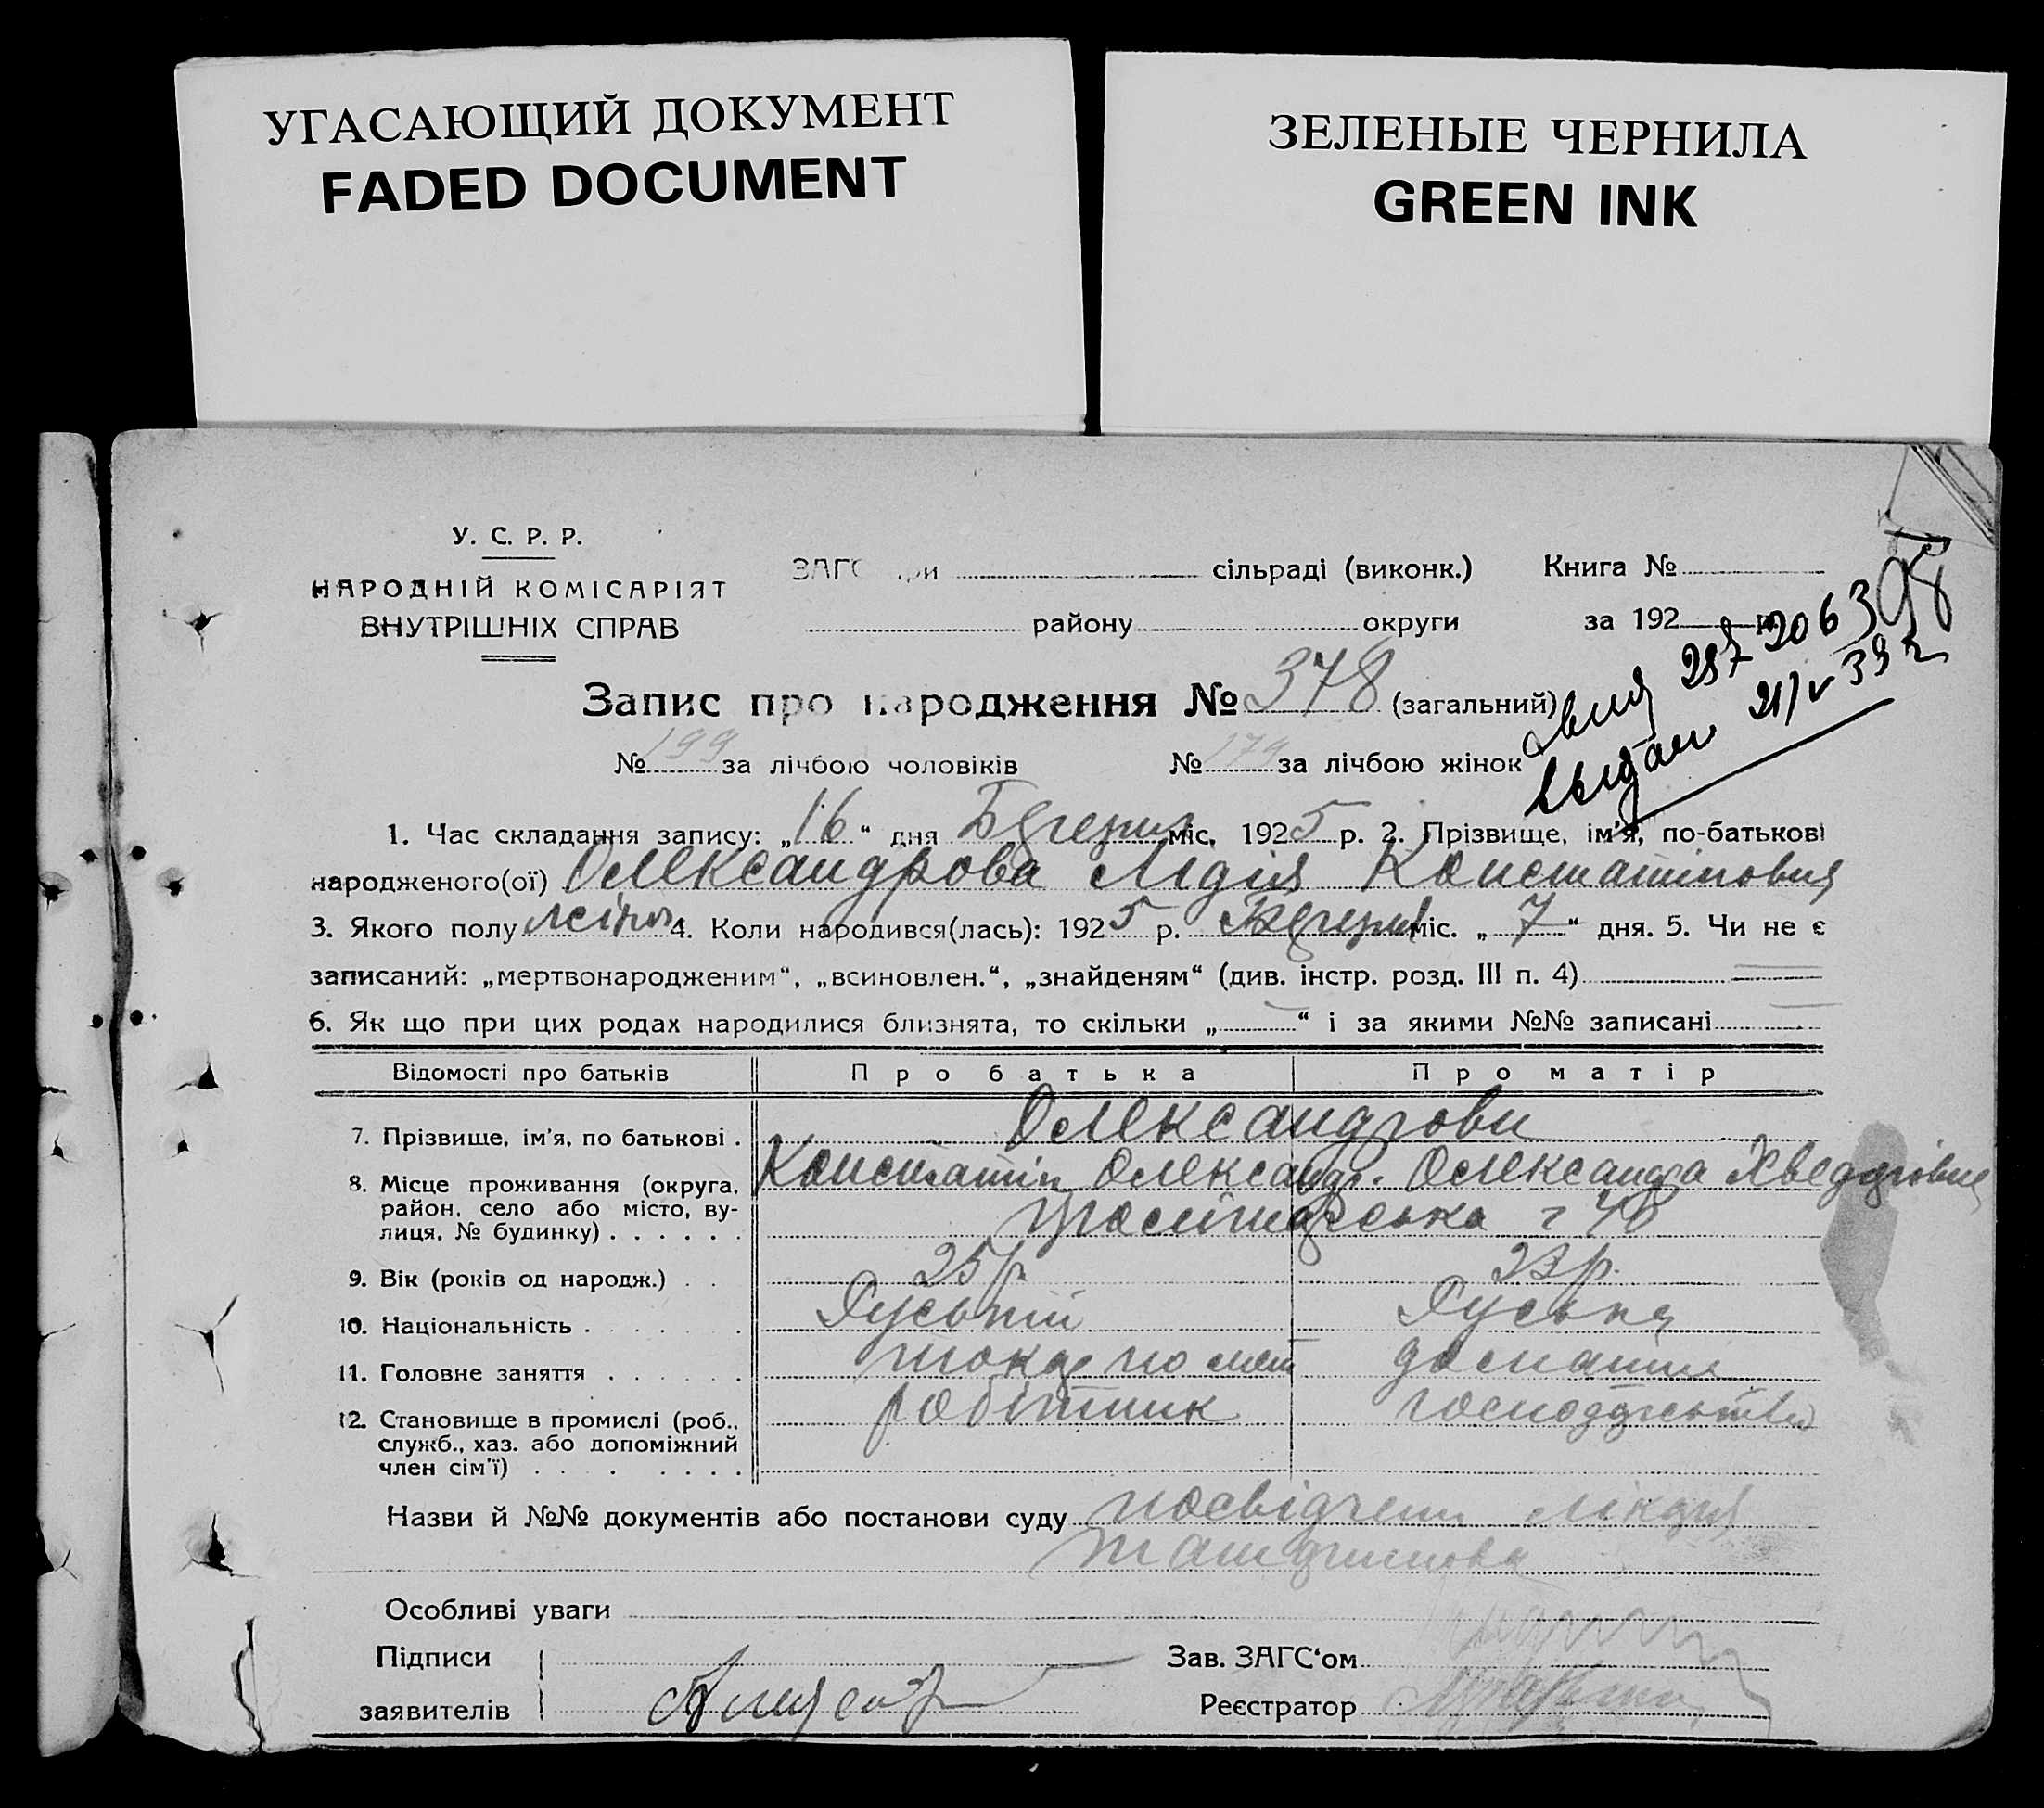 УГАСАЮЩИЙ ДОКУМЕНТ
FADED DOCUMENT
ЗЕЛЕНЫЕ ЧЕРНИЛА
GREEN INK
У. С. Р. Р.
НАРОДНІЙ КОМІСАРІЯТ
ВНУТРІШНІХ СПРАВ
ЗАГС при сільраді (виконк.)
району округи
Книга №
за 192 р.
398
287206
выдан 21/V 39 г
Запис про народження № 378 (загальний)
№ 199 за лічбою чоловіків № 179 за лічбою жінок
1. Час складання запису: „16“ дня Березня міс. 1925 р. 2. Прізвище, ім'я, по-батькові
народженого(ої) Олександрова Лідія Константіновна
3. Якого полу жіноч 4. Коли народився(лась): 1925 р. Березня міс. „7“ дня. 5. Чи не є
записаний: „мертвонародженим“, „всиновлен.“, „знайденям“ (див. інстр. розд. III п. 4) —
6. Як що при цих родах народилися близнята, то скільки „—“ і за якими №№ записані —
Відомості про батьків Про батька Про матір
7. Прізвище, ім'я, по батькові . Олександрови
Константін Олександр. Олександра Хведорівна
8. Місце проживання (округа,
район, село або місто, ву-
лиця, № будинку) . . . . . . 
9. Вік (років од народж.) . . 25 р. 23 р.
10. Національність . . . . . . Руський Руська
11. Головне заняття . . . . . . токар по мет домашнє
12. Становище в промислі (роб., робітник господарство
служб., хаз. або допоміжний
член сім'ї) . . . . . . . .
Назви й №№ документів або постанови суду посвідчення лікаря
Особливі уваги
Підписи
заявителів
Зав. ЗАГС'ом
Реєстратор